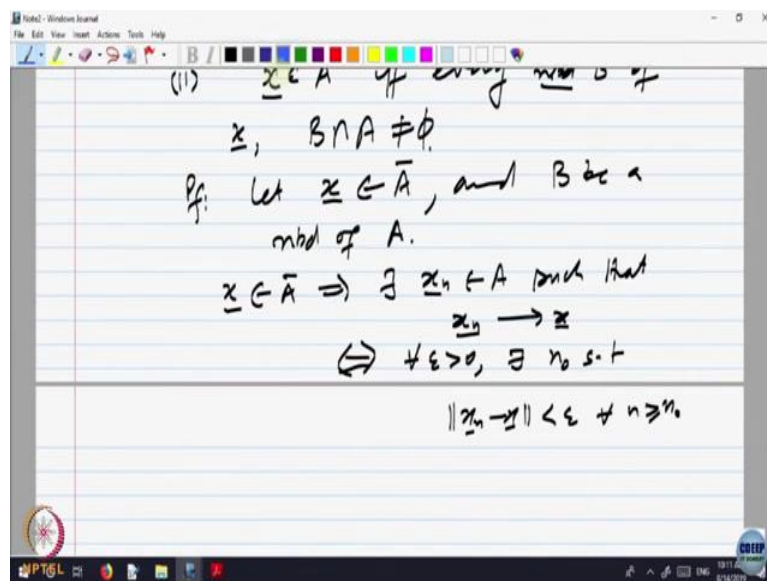 Note2 - Windows Journal
File Edit View Insert Actions Tools Help
(ii) x ∈ A iff every nbd B of
x, B ∩ A ≠ φ.
Pf: Let x ∈ Ā, and B be a
nbd of A.
x ∈ Ā ⇒ ∃ xₙ ∈ A such that
xₙ → x
⇔ ∀ ε > 0, ∃ n₀ s.t
||xₙ - x|| < ε ∀ n ≥ n₀
NPTEL
CDEEP
ENG
8/14/2019